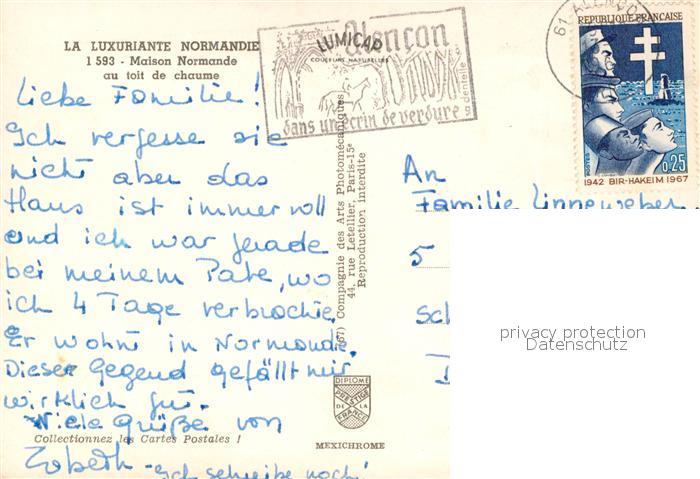 LA LUXURIANTE NORMANDIE
1 593 - Maison Normande
au toit de chaume
LUMICAP
COULEURS NATURELLES
Alençon
sa dentelle
dans un écrin de verdure
61 ALENÇON
REPUBLIQUE FRANCAISE
POSTES
0,25
1942 BIR-HAKEIM 1967
Liebe Familie!
Ich vergesse sie
nicht aber das
Haus ist immer voll
und ich war jerade
bei meinem Pate, wo
ich 4 Tage verbrochte.
Er wohnt in Normandie.
Dieser Gegend gefällt mir
wirklich gut.
Viele Grüße von
- Ich schreibe noch!
An
Familie Linneweber
5
Sch
Compagnie des Arts Photomécaniques
44, rue Letellier, Paris-15e
Reproduction Interdite
DIPLOME
PRESTIGE
DE LA
FRANCE
MEXICHROME
Collectionnez les Cartes Postales !
privacy protection
Datenschutz